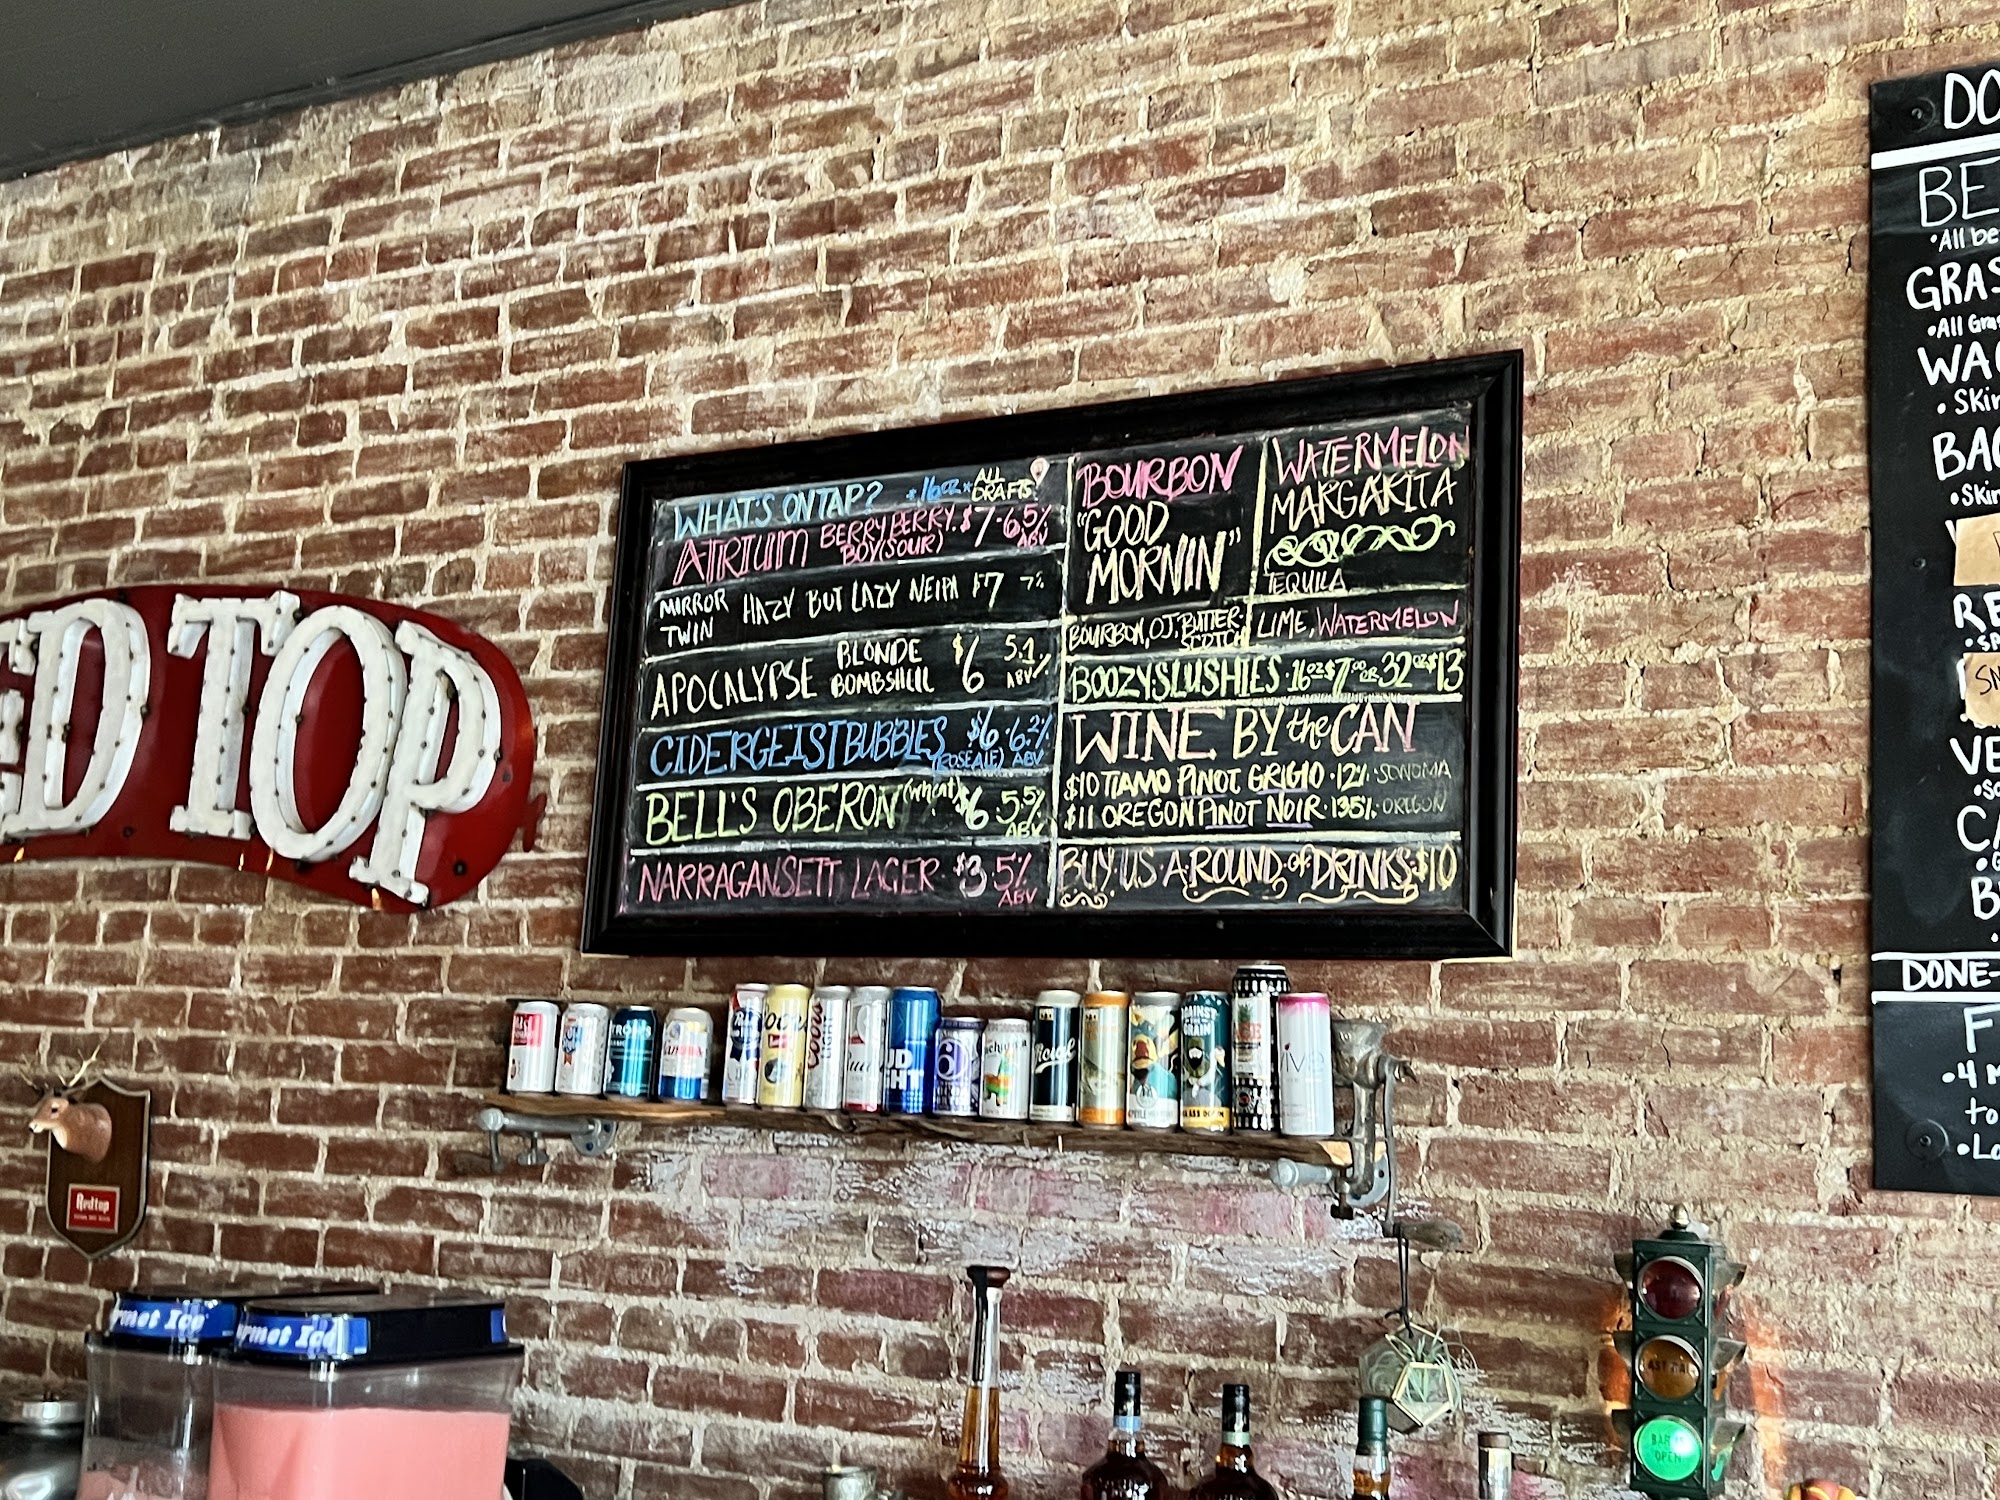 WHAT'S ON TAP? *16oz* ALL DRAFTS!
ATRIUM BERRY BERRY BOY (SOUR) $7·6.5% ABV
MIRROR TWIN HAZY BUT LAZY NEIPA $7 7%
APOCALYPSE BLONDE BOMBSHELL $6 5.1% ABV
CIDERGEIST BUBBLES (ROSÉ ALE) $6·6.2% ABV
BELL'S OBERON (wheat) $6 5.5% ABV
NARRAGANSETT LAGER·$3·5% ABV
BOURBON
"GOOD
MORNIN"
BOURBON, OJ, BUTTER-
SCOTCH
WATERMELON
MARGARITA
TEQUILA
LIME, WATERMELON
BOOZY SLUSHIES·16oz $7.00 OR 32oz $13
WINE BY the CAN
$10 TIAMO PINOT GRIGIO·12%·SONOMA
$11 OREGON PINOT NOIR·13.5%·OREGON
BUY US A ROUND of DRINKS·$10
TOP
Redtop
COORS
LIGHT
AGAINST
the GRAIN
BAR IS
OPEN
DO
BE
•All be
GRAS
•All Gras
WAG
•Skin
BAG
•Skin
RE
VE
CA
DONE-
F
•4 M
to
•Lo